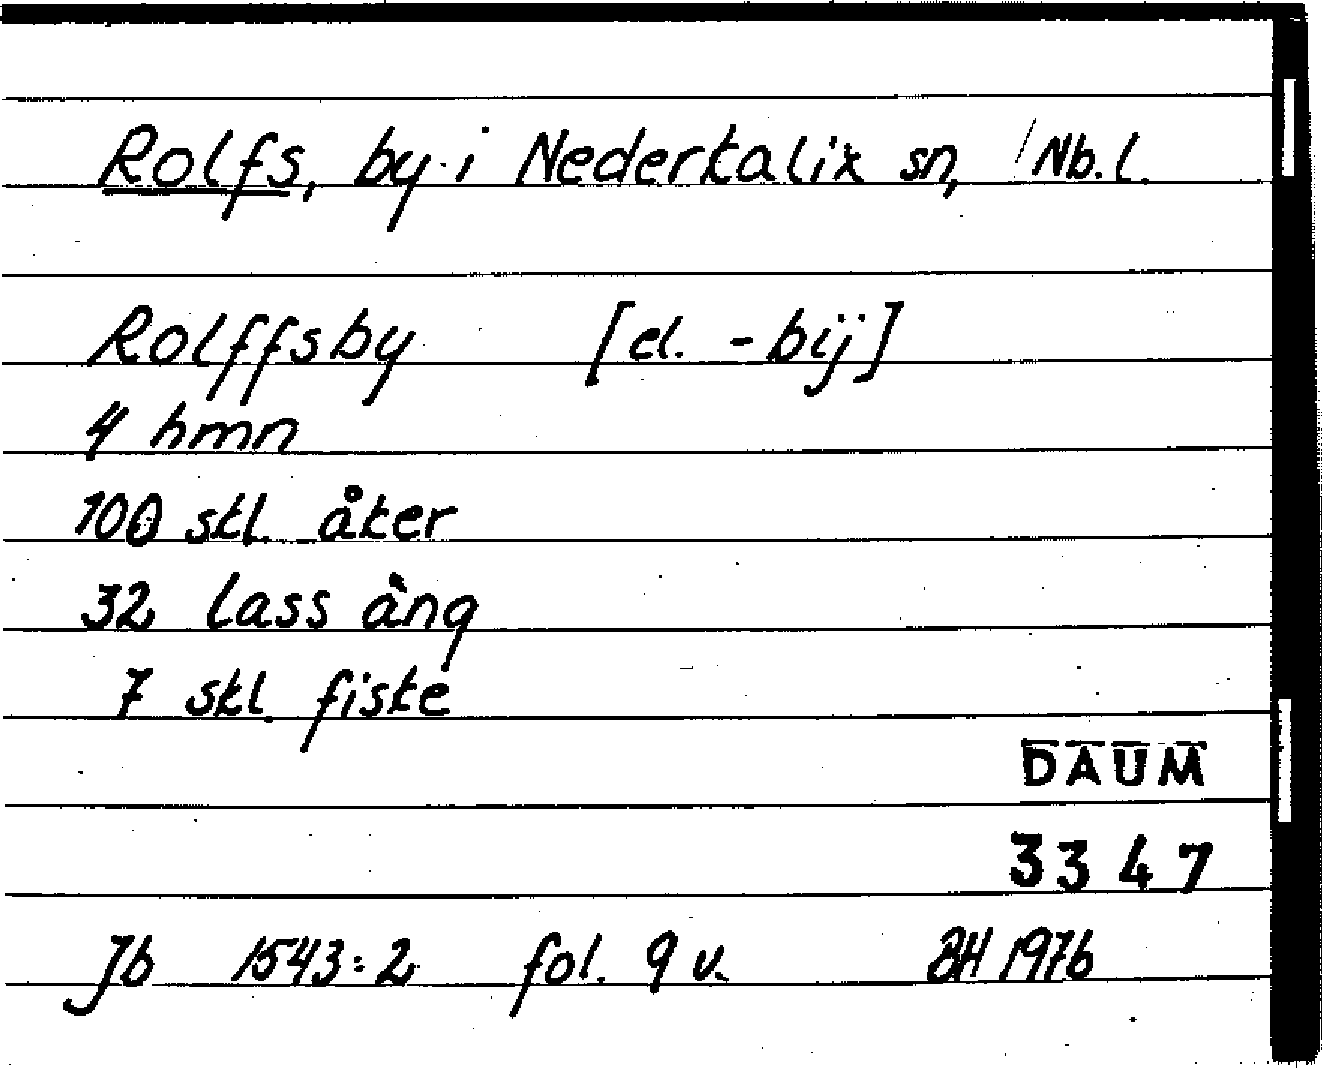 Rolfs, by i Nederkalix sn, Nb.l.
Rolffsby [el. -bij]
4 hmn
100 skl. åker
32 lass äng
7 skl. fiske
DAUM
3347
Jb 1543:2 fol. 9 v. BH 1976